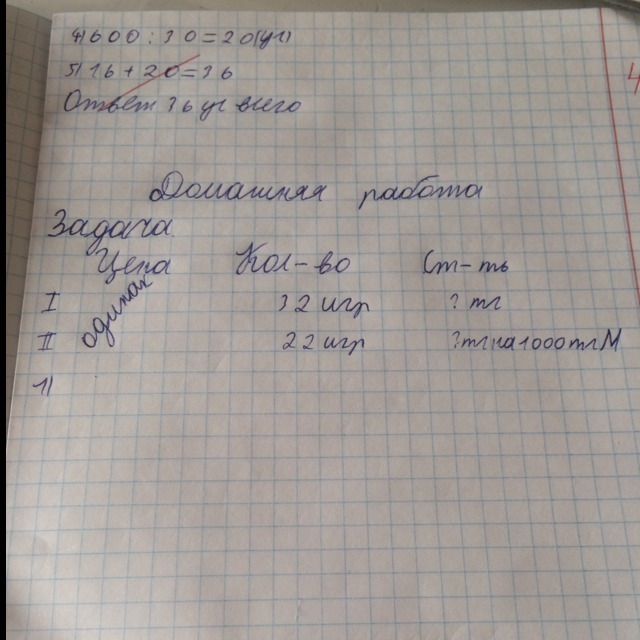 4) 600 : 30 = 20 (уг)
5) 16 + 20 = 36
Ответ 36 уг всего
4
Домашняя работа
Задача
Цена Кол-во Ст-ть
I одинак 32 игр ? тг
II 22 игр ? тг на 1000 тг М
1)